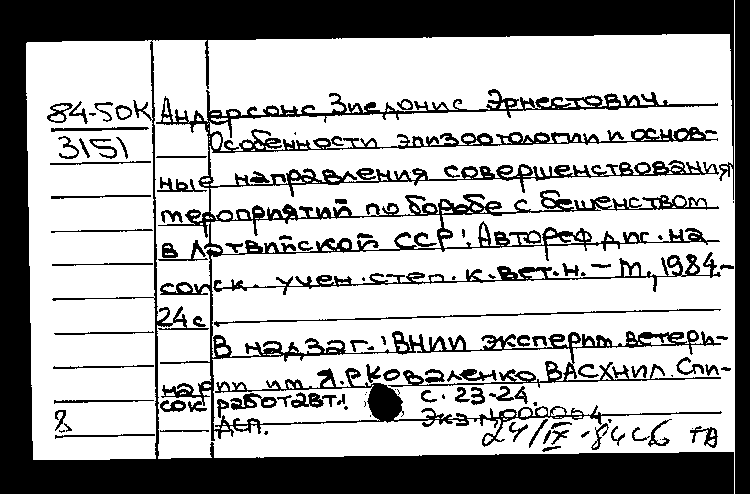 84-50К Андерсонс, Зиедонис Эрнестович.
3151 Особенности эпизоотологии и основ-
ные направления совершенствования
мероприятий по борьбе с бешенством
в Латвийской ССР: Автореф. дис. на
соиск. учен. степ. к. вет. н. – М., 1984.–
24 с.
В надзаг.: ВНИИ эксперим. ветери-
нарии им. Я.Р. Коваленко, ВАСХНИЛ. Спи-
сок работ авт.: с. 23-24.
8 ДСП. Экз. N000064.
24/IX-84